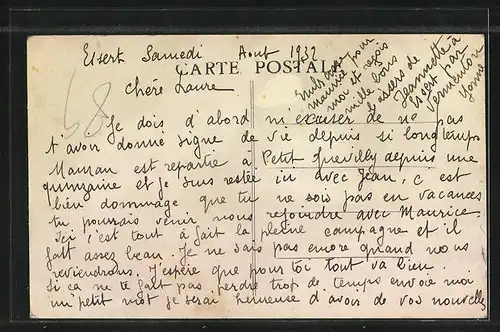 Essert Samedi Aout 1932
CARTE POSTALE
Chère Laure
Je dois d'abord m'excuser de ne pas
t'avoir donné signe de vie depuis si longtemps
Maman est repartie à Petit Quevilly depuis une
quinzaine et je suis restée ici avec Jean, c'est
bien dommage que tu ne sois pas en vacances
tu pourrais venir nous rejoindre avec Maurice
Ici c'est tout à fait la pleine campagne et il
fait assez beau. Je ne sais pas encore quand nous
reviendrons. J'espère que pour toi tout va bien.
Si ça ne te fait pas perdre trop de temps envoie moi
un petit mot je serai heureuse d'avoir de vos nouvelles
Embrasse
Maurice pour
moi et reçois
mille bons
baisers de
Jeannette à
Essert par
Vermenton
Yonne
68